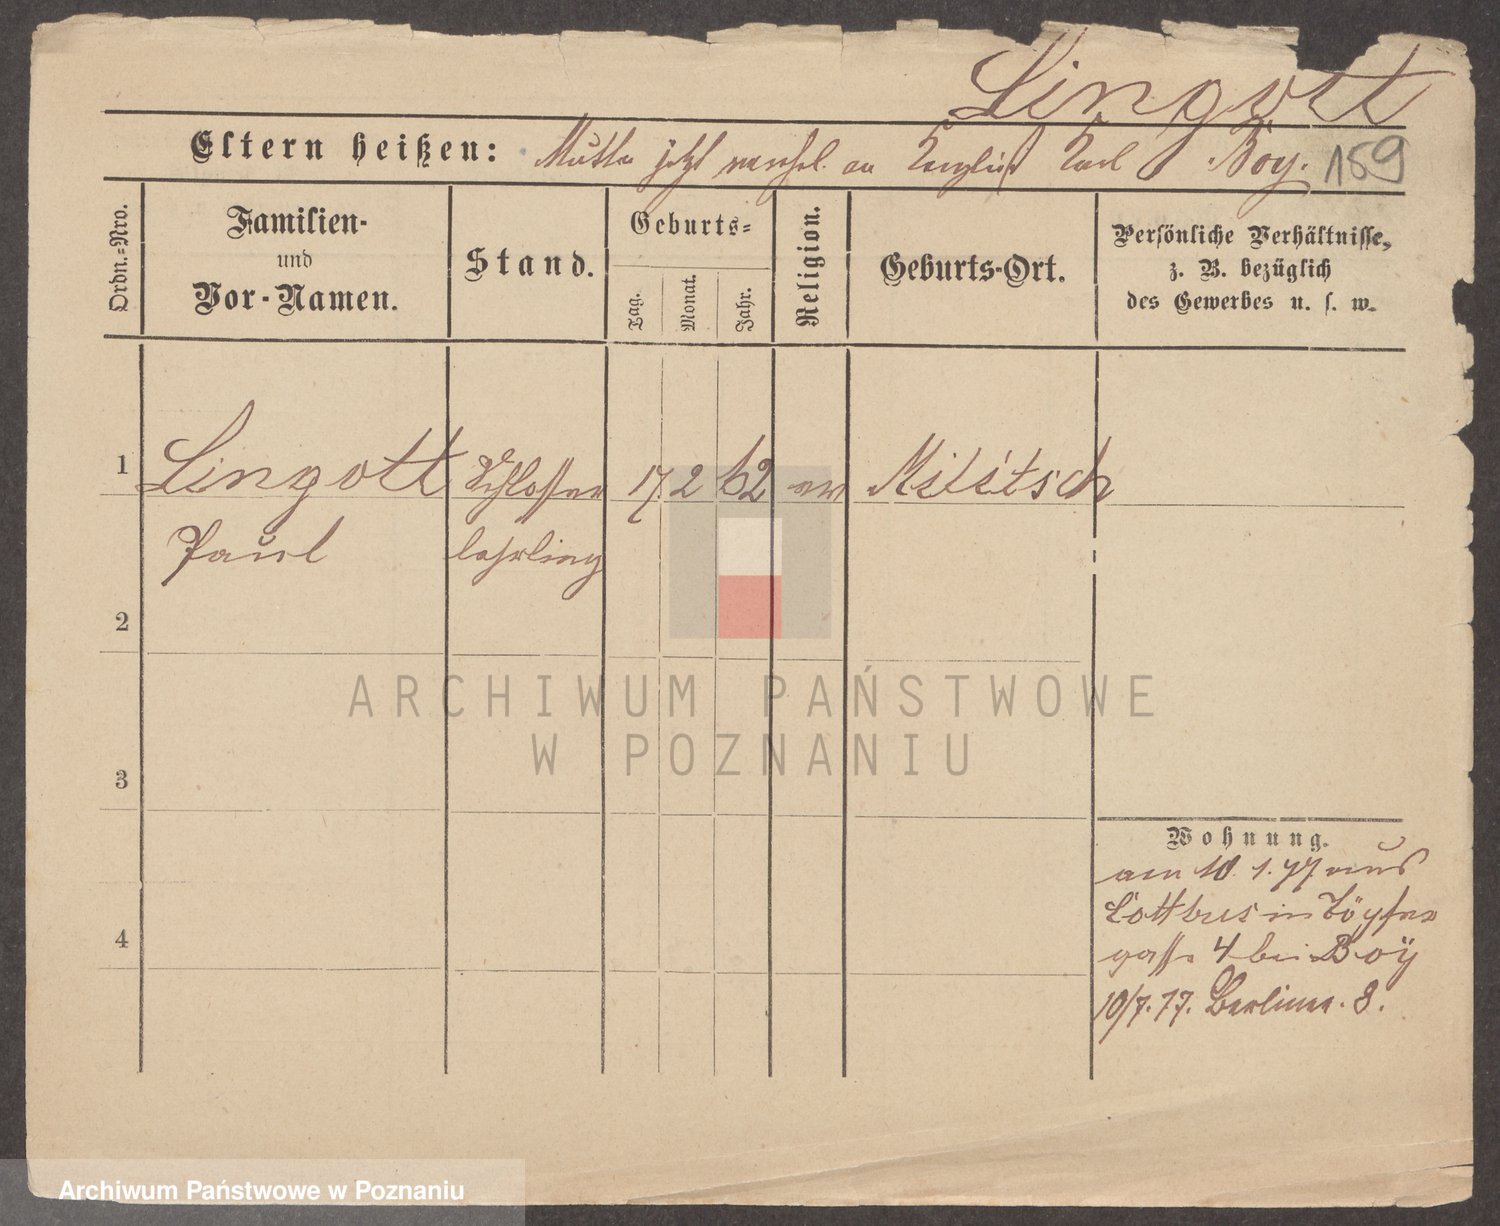 Lingott
Eltern heißen: Mutter jetzt verehel. an Kanzlist Karl Boy. 159
Ordn.-Nro.
Familien-
und
Vor-Namen.
Stand.
Geburts-
Tag.
Monat.
Jahr.
Religion.
Geburts-Ort.
Persönliche Verhältnisse,
z. B. bezüglich
des Gewerbes u. s. w.
1 Lingott Schlosser 17 2 62 ev Militsch
Paul lehrling
2
ARCHIWUM PAŃSTWOWE
W POZNANIU
3
Wohnung.
am 10. 1. 77 aus
Cottbus in Töpfer
4
gasse 4 bei Boÿ
10/7. 77. Berliner. 8.
Archiwum Państwowe w Poznaniu